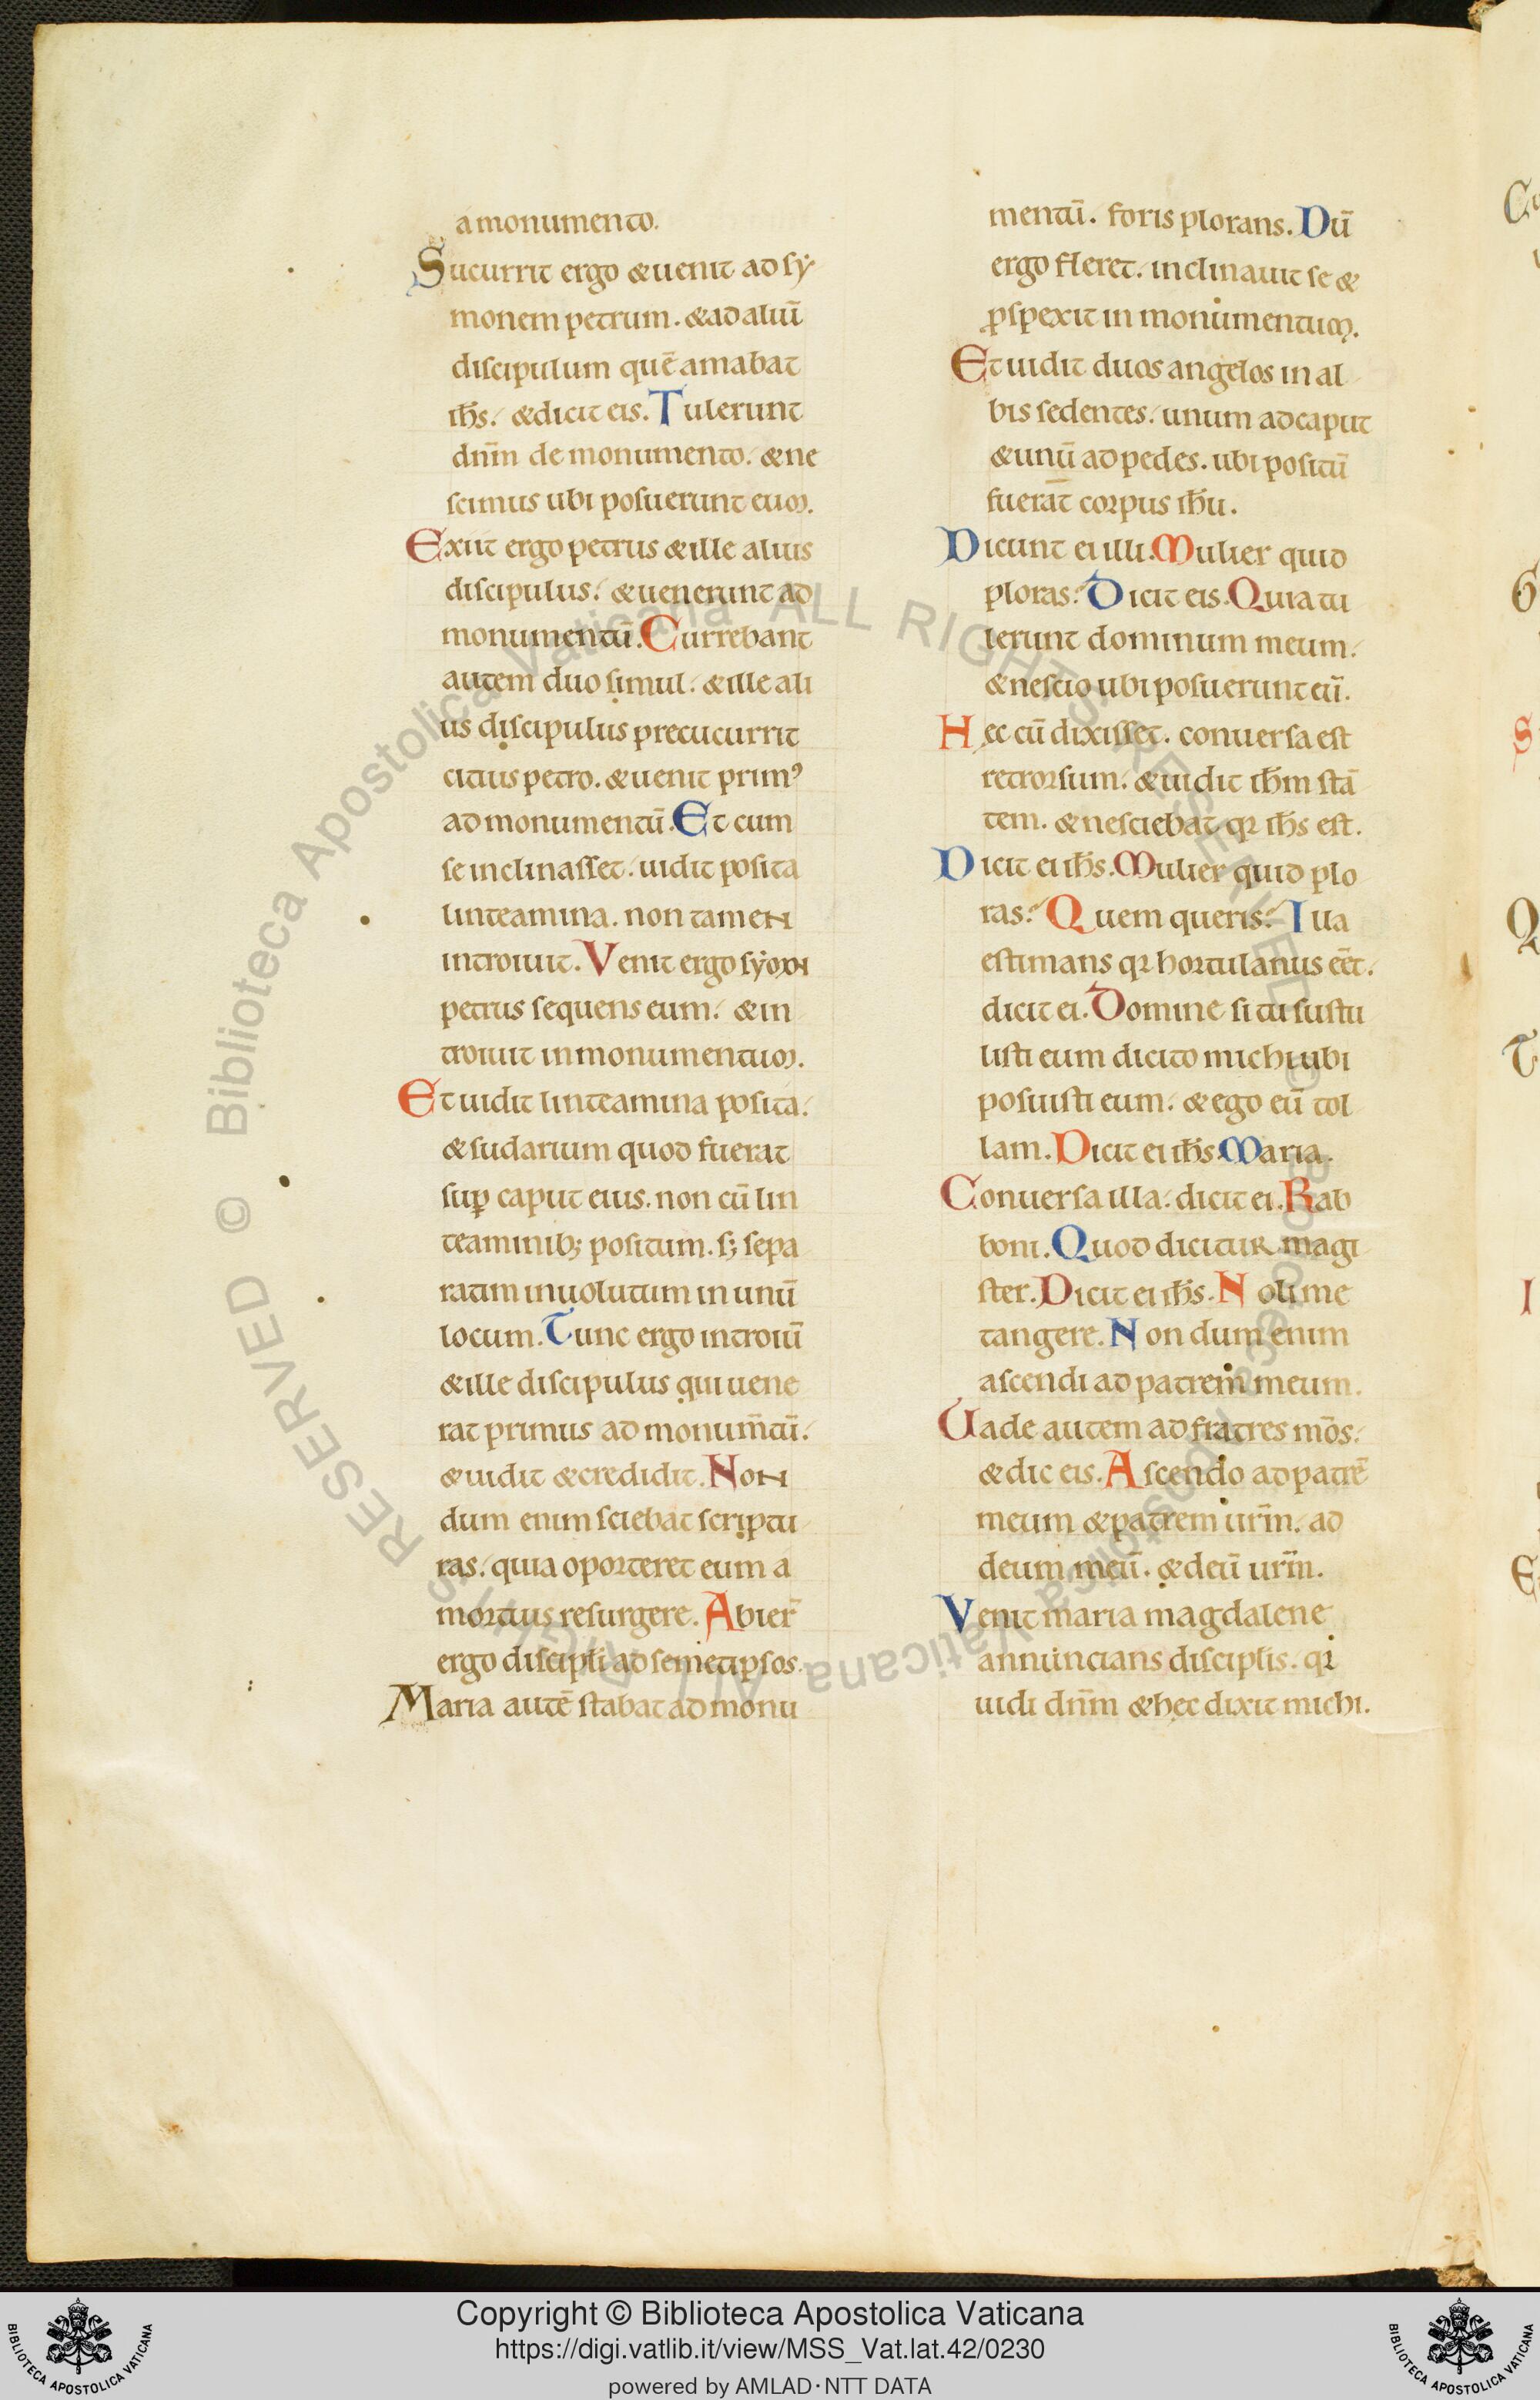 a monumento.
Sucurrit ergo & uenit ad sẏ
monem petrum. & ad aliū
discipulum quē amabat
ih̅s. & dicit eis. Tulerunt
dn̅m de monumento. & ne
scimus ubi posuerunt eum.
Exiit ergo petrus & ille alius
discipulus. & uenerunt ad
monumentū. Currebant
autem duo simul. & ille ali
us discipulus precucurrit
citius petro. & uenit primꝰ
ad monumentū. Et cum
se inclinasset. uidit posita
linteamina. non tamen
introiuit. Venit ergo sẏmon
petrus sequens eum. & in
troiuit in monumentum.
Et uidit linteamina posita.
& sudarium quod fuerat
sup̱ caput eius. non cū lin
teaminib; positum. s; sepa
ratim inuolutum in unū
locum. Tunc ergo introiuı̅
& ille discipulus qui uene
rat primus ad monum̅tū.
& uidit & credidit. Non
dum enim sciebat scriptu
ras. quia oporteret eum a
mortuis resurgere. Abier̅
ergo discipli ad semetipsos.
Maria autē stabat ad monu
mentū. foris plorans. Dū
ergo fleret. inclinauit se &
ꝓspexit in monumentum.
Et uidit duos angelos in al
bis sedentes. unum ad caput
& unū ad pedes. ubi positū
fuerat corpus ih̅u.
Dicunt ei illi. Mulier quid
ploras? Dicit eis. Quia tu
lerunt dominum meum.
& nescio ubi posuerunt eū.
Hęc cū dixisset. conuersa est
retrorsum. & uidit ih̅m stā
tem. & nesciebat qꝛ ih̅s est.
Dicit ei ih̅s. Mulier quid plo
ras? Quem queris? Iɩɩa
estimans qꝛ hortulanus eēt.
dicit ei. Domine si tu sustu
listi eum dicito michi ubi
posuisti eum. & ego eū tol
lam. Dicit ei ih̅s. Maria.
Conuersa illa. dicit ei. Rab
boni. Quod dicitur magi
ster. Dicit ei ih̅s. Noli me
tangere. Non dum enim
ascendi ad patrem meum.
Uade autem ad fratres mo̅s.
& dic eis. Ascendo ad patrē
meum & patrem ur̅m. ad
deum meū. & deū ur̅m.
Venit maria magdalene
annuncians disciplis. qi
uidi dn̅m & hęc dixit michi.
Copyright © Biblioteca Apostolica Vaticana
https://digi.vatlib.it/view/MSS_Vat.lat.42/0230
powered by AMLAD·NTT DATA